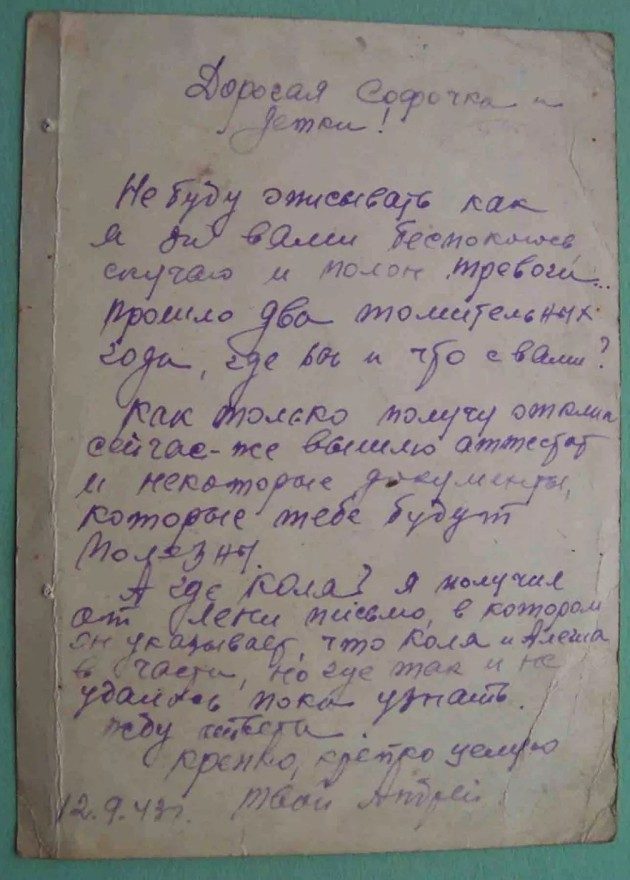 Дорогая Софочка и
детки!
Не буду описывать как
я за вами беспокоюсь
скучаю и полон тревоги..
прошло два томительных
года, где вы и что с вами?
Как только получу отклик
сейчас-же вышлю аттестат
и некоторые документы,
которые тебе будут
полезны.
А где Коля? Я получил
от Лени письмо, в котором
он указывает, что Коля и Алеша
в части, но где так и не
удалось пока узнать.
жду ответа.
крепко, крепко целую
12.9.43г. твой Андрей